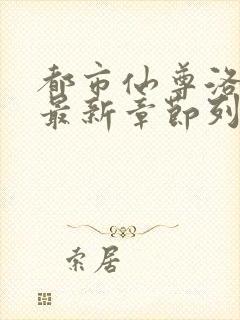 都市仙尊洛
最新章节列
索居